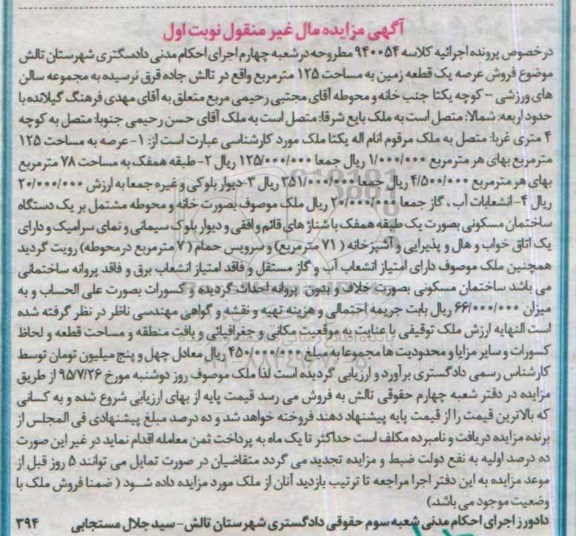 آگهی مزایده مال غیر منقول نوبت اول
درخصوص پرونده اجرائیه کلاسه ۹۴۰۰۵۴ مطروحه در شعبه چهارم اجرای احکام مدنی دادسگتری شهرستان تالش
موضوع فروش عرصه یک قطعه زمین به مساحت ۱۲۵ مترمربع واقع در تالش جاده قرق نرسیده به مجموعه سالن
های ورزشی - کوچه یکتا جنب خانه و محوطه آقای مجتبی رحیمی مربع متعلق به آقای مهدی فرهنگ گیلانده با
حدود اربعه: شمالا: متصل است به ملک بایع شرقا: متصل است به ملک آقای حسن رحیمی جنوبا: متصل به کوچه
۴ متری غربا: متصل به ملک مرقوم انام اله یکتا ملک مورد کارشناسی عبارت است از: ۱- عرصه به مساحت ۱۲۵
مترمربع بهای هر مترمربع ۱/۰۰۰/۰۰۰ ریال جمعا ۱۲۵/۰۰۰/۰۰۰ ریال ۲- طبقه همکف به مساحت ۷۸ مترمربع
بهای هر مترمربع ۴/۵۰۰/۰۰۰ ریال جمعا ۳۵۱/۰۰۰/۰۰۰ ریال ۳- دیوار بلوکی و غیره جمعا به ارزش ۲۰/۰۰۰/۰۰۰
ریال ۴- انشعابات آب ، گاز جمعا ۲۰/۰۰۰/۰۰۰ ریال ملک موصوف بصورت خانه و محوطه مشتمل بر یک دستگاه
ساختمان مسکونی بصورت یک طبقه همکف با شناژ های قائم و افقی و دیوار بلوک سیمانی و نمای سرامیک و دارای
یک اتاق خواب و هال و پذیرایی و آشپزخانه ( ۷۱ مترمربع) و سرویس حمام ( ۷ مترمربع در محوطه) رویت گردید
همچنین ملک موصوف دارای امتیاز انشعاب آب و گاز مستقل و فاقد امتیاز انشعاب برق و فاقد پروانه ساختمانی
می باشد ساختمان مسکونی بصورت خلاف و بدون پروانه احداث گردیده و کسورات بصورت علی الحساب و به
میزان ۶۶/۰۰۰/۰۰۰ ریال بابت جریمه احتمالی و هزینه تهیه و نقشه و گواهی مهندسی ناظر در نظر گرفته شده
است النهایه ارزش ملک توقیفی با عنایت به موقعیت مکانی و جغرافیائی و بافت منطقه و مساحت قطعه و لحاظ
کسورات و سایر مزایا و محدودیت ها مجموعا به مبلغ ۴۵۰/۰۰۰/۰۰۰ ریال معادل چهل و پنج میلیون تومان توسط
کارشناس رسمی دادگستری برآورد و ارزیابی گردیده است لذا ملک موصوف روز دوشنبه مورخ ۹۵/۷/۲۶ از طریق
مزایده در دفتر شعبه چهارم حقوقی تالش به فروش می رسد قیمت پایه از بهای ارزیابی شروع شده و به کسانی
که بالاترین قیمت را از قیمت پایه پیشنهاد دهند فروخته خواهد شد و ده درصد مبلغ پیشنهادی فی المجلس از
برنده مزایده دریافت و نامبرده مکلف است حداکثر تا یک ماه به پرداخت ثمن معامله اقدام نماید در غیر این صورت
ده درصد اولیه به نفع دولت ضبط و مزایده تجدید می گردد متقاضیان در صورت تمایل می توانند ۵ روز قبل از
موعد مزایده به این دفتر اجرا مراجعه تا ترتیب بازدید آنان از ملک مورد مزایده داده شود ( ضمنا فروش ملک با
وضعیت موجود می باشد)
دادورز اجرای احکام مدنی شعبه سوم حقوقی دادگستری شهرستان تالش- سید جلال مستجابی ۳۹۴